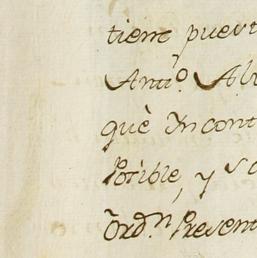 tiene puert
Anti.º Al
què Incont
Posible, y s
Ord.n Present